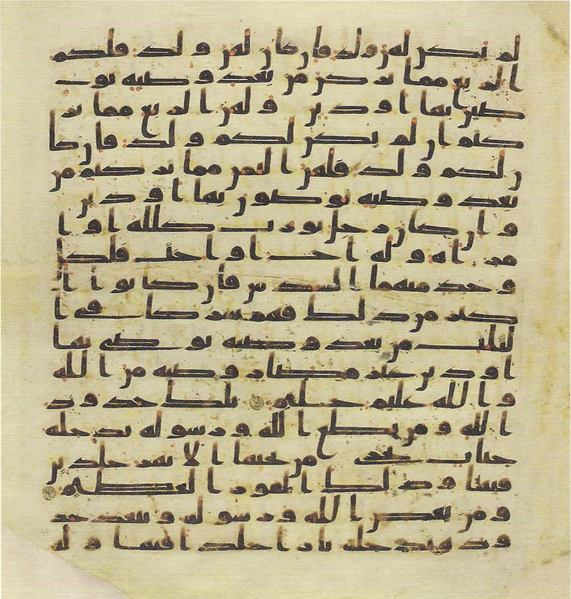 لم يكن لهن ولد فان كان لهن ولد فلكم
الربع مما تركن من بعد وصية يو
صين بها او دين ولهن الربع مما تر
كتم ان لم يكن لكم ولد فان كا
ن لكم ولد فلهن الثمن مما تركتم من
بعد وصية توصون بها او دين
وان كان رجل يورث كلله او ا
مراه وله اخ او اخت فلكل
وحد منهما السدس فان كانوا ا
كثر من ذلك فهم شركا في ا
لثلث من بعد وصية يوصى بها
او دين غير مضار وصية من الله
والله عليم حليم تلك حدود
الله ومن يطع الله ورسوله يدخله
جنات تجري من تحتها الانهر خلدين
فيها وذلك الفوز العظيم
ومن يعص الله ورسوله ويتعد حد
وده يدخله نارا خلدا فيها وله